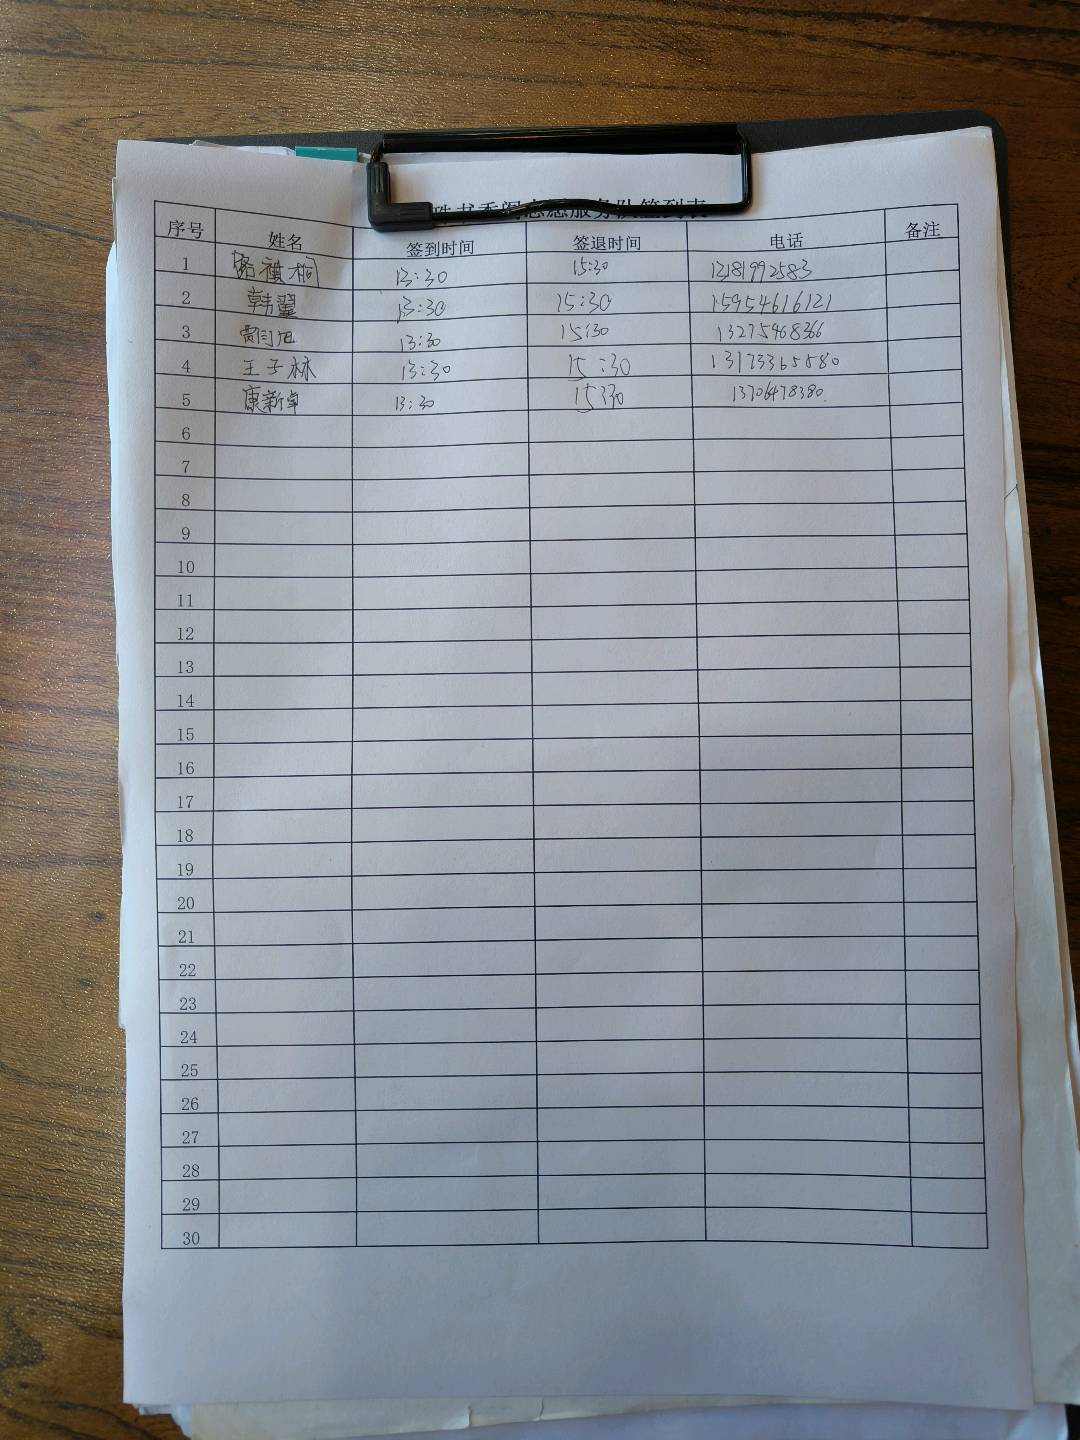 书香阁志愿服务队签到表
序号 姓名 签到时间 签退时间 电话 备注
1 13:30 15:30 13181992583
2 韩翼 13:30 15:30 15954616121
3 13:30 15:30 13275468366
4 王子林 13:30 15:30 13173365580
5 康新卓 13:30 15330 13706478380
6
7
8
9
10
11
12
13
14
15
16
17
18
19
20
21
22
23
24
25
26
27
28
29
30